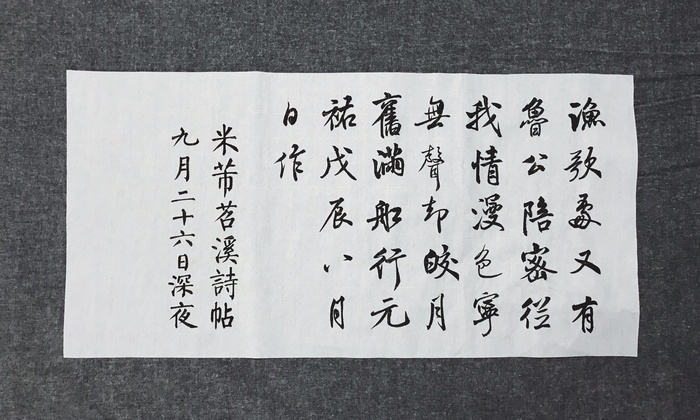 漁歌處又有
魯公陪密從
我情漫色寧
無聲却皎月
舊滿船行元
祐戊辰八月
日作
米芾苕溪詩帖
九月二十六日深夜